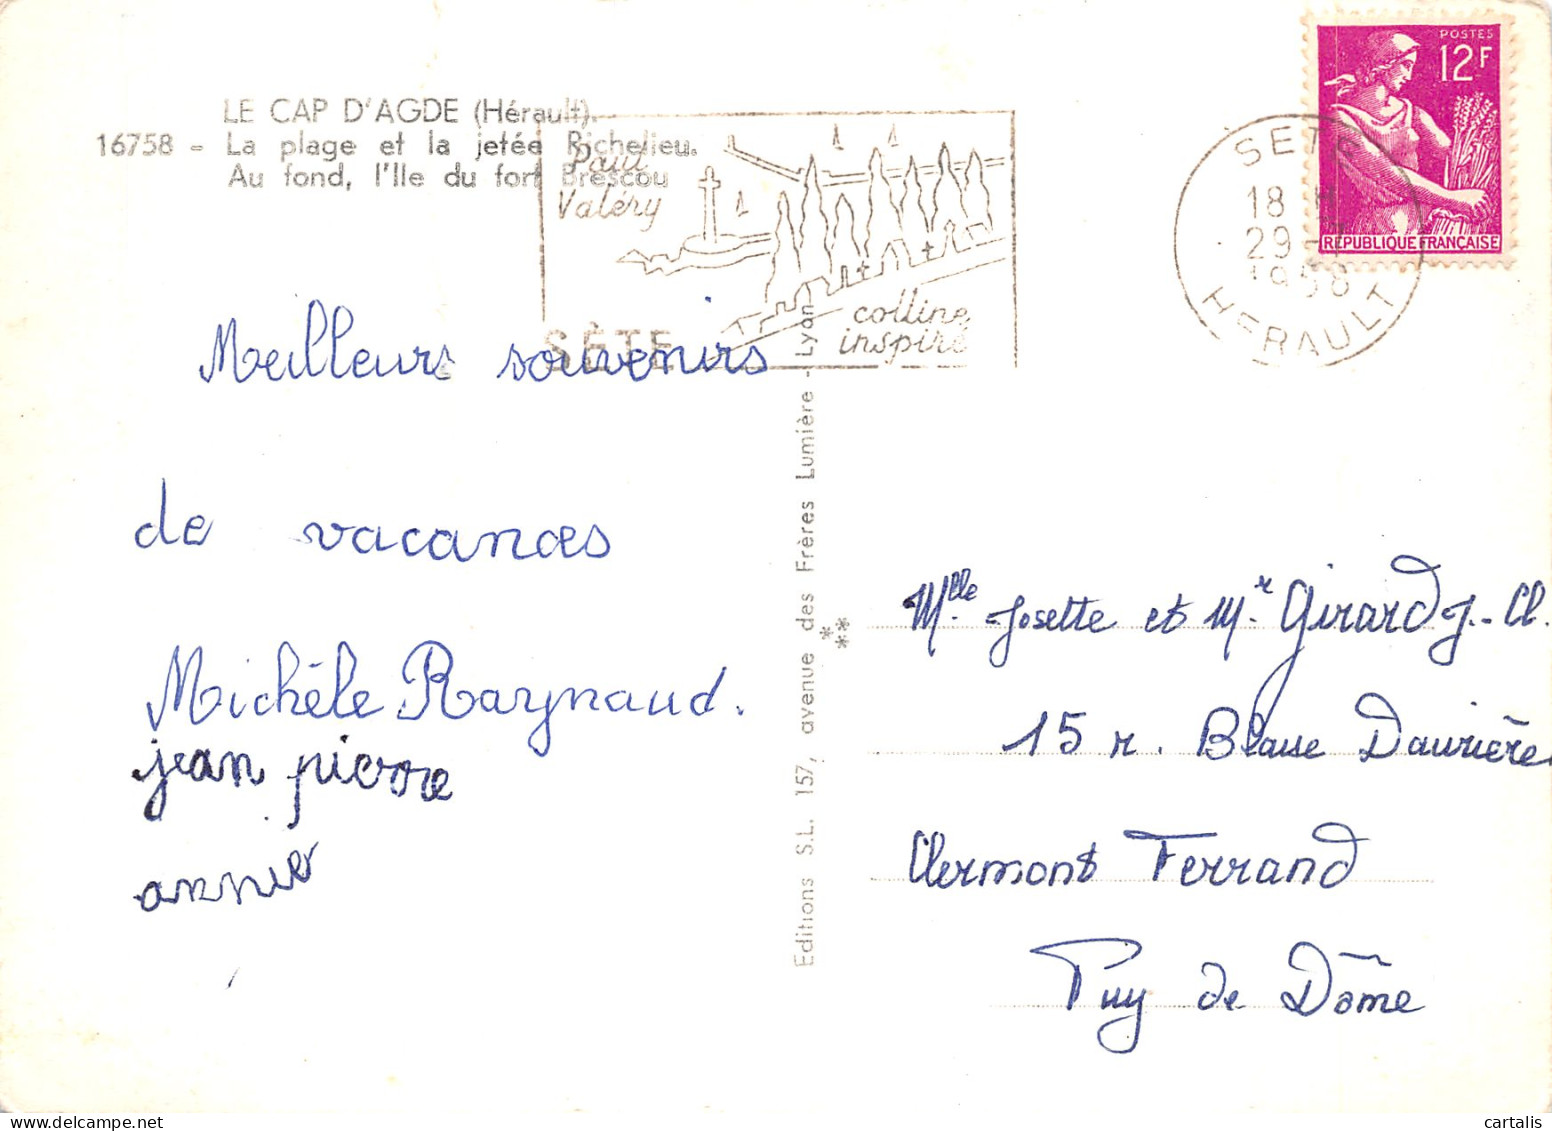 LE CAP D'AGDE (Hérault).
16758 - La plage et la jetée Richelieu.
Au fond, l'Ile du fort Brescou
Paul
Valéry
colline
inspiré
SÈTE
POSTES
12F
REPUBLIQUE FRANÇAISE
SETE
18 H
29 -
1958
HERAULT
Meilleurs souvenirs
de vacances
Michèle Raynaud.
jean pierre
annie
Editions S.L. 157, avenue des Frères Lumière - Lyon
Mlle Josette et Mr Girard J.-Cl.
15 r. Blaise
Clermont Ferrand
Puy de Dôme
cartalis